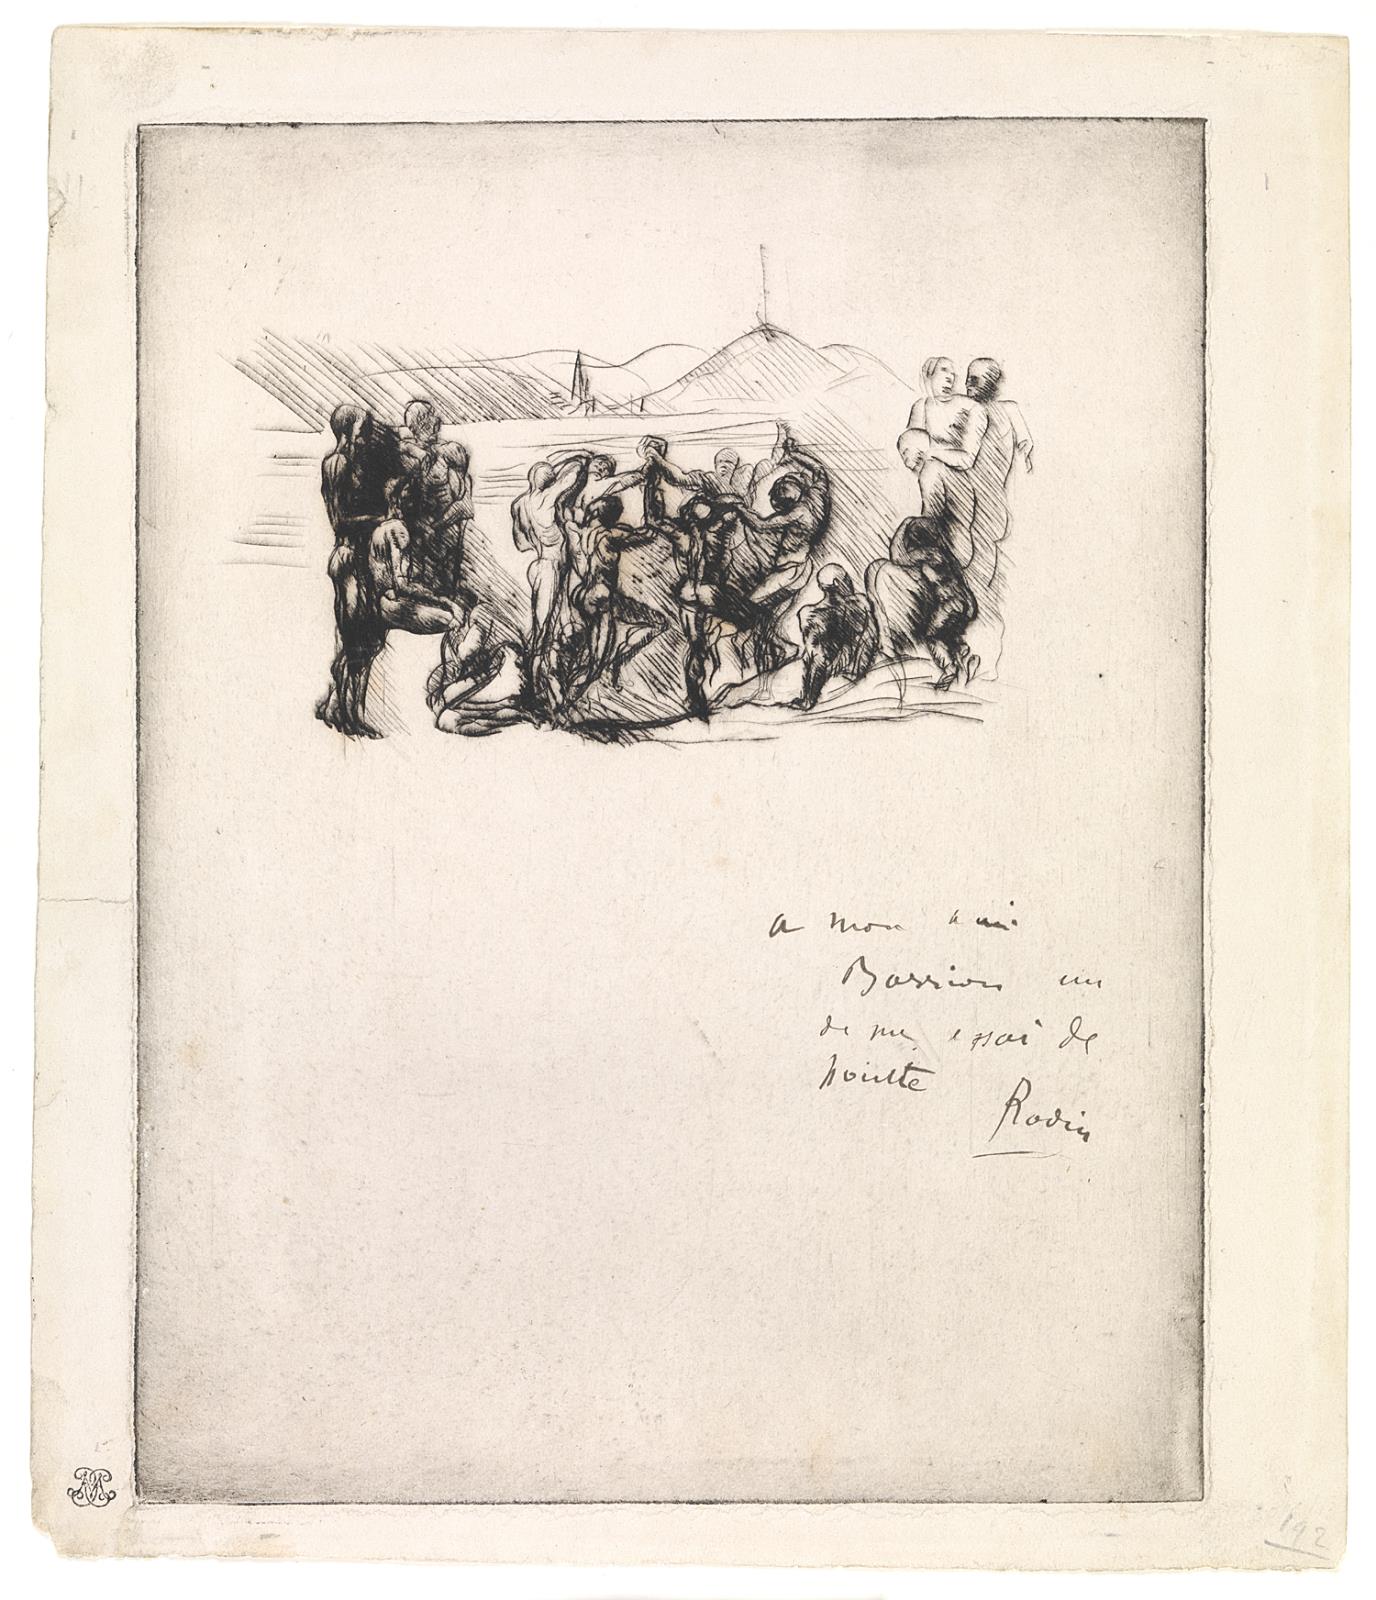 a mon ami
Barrion un
de mes essai de
pointe
Rodin
192